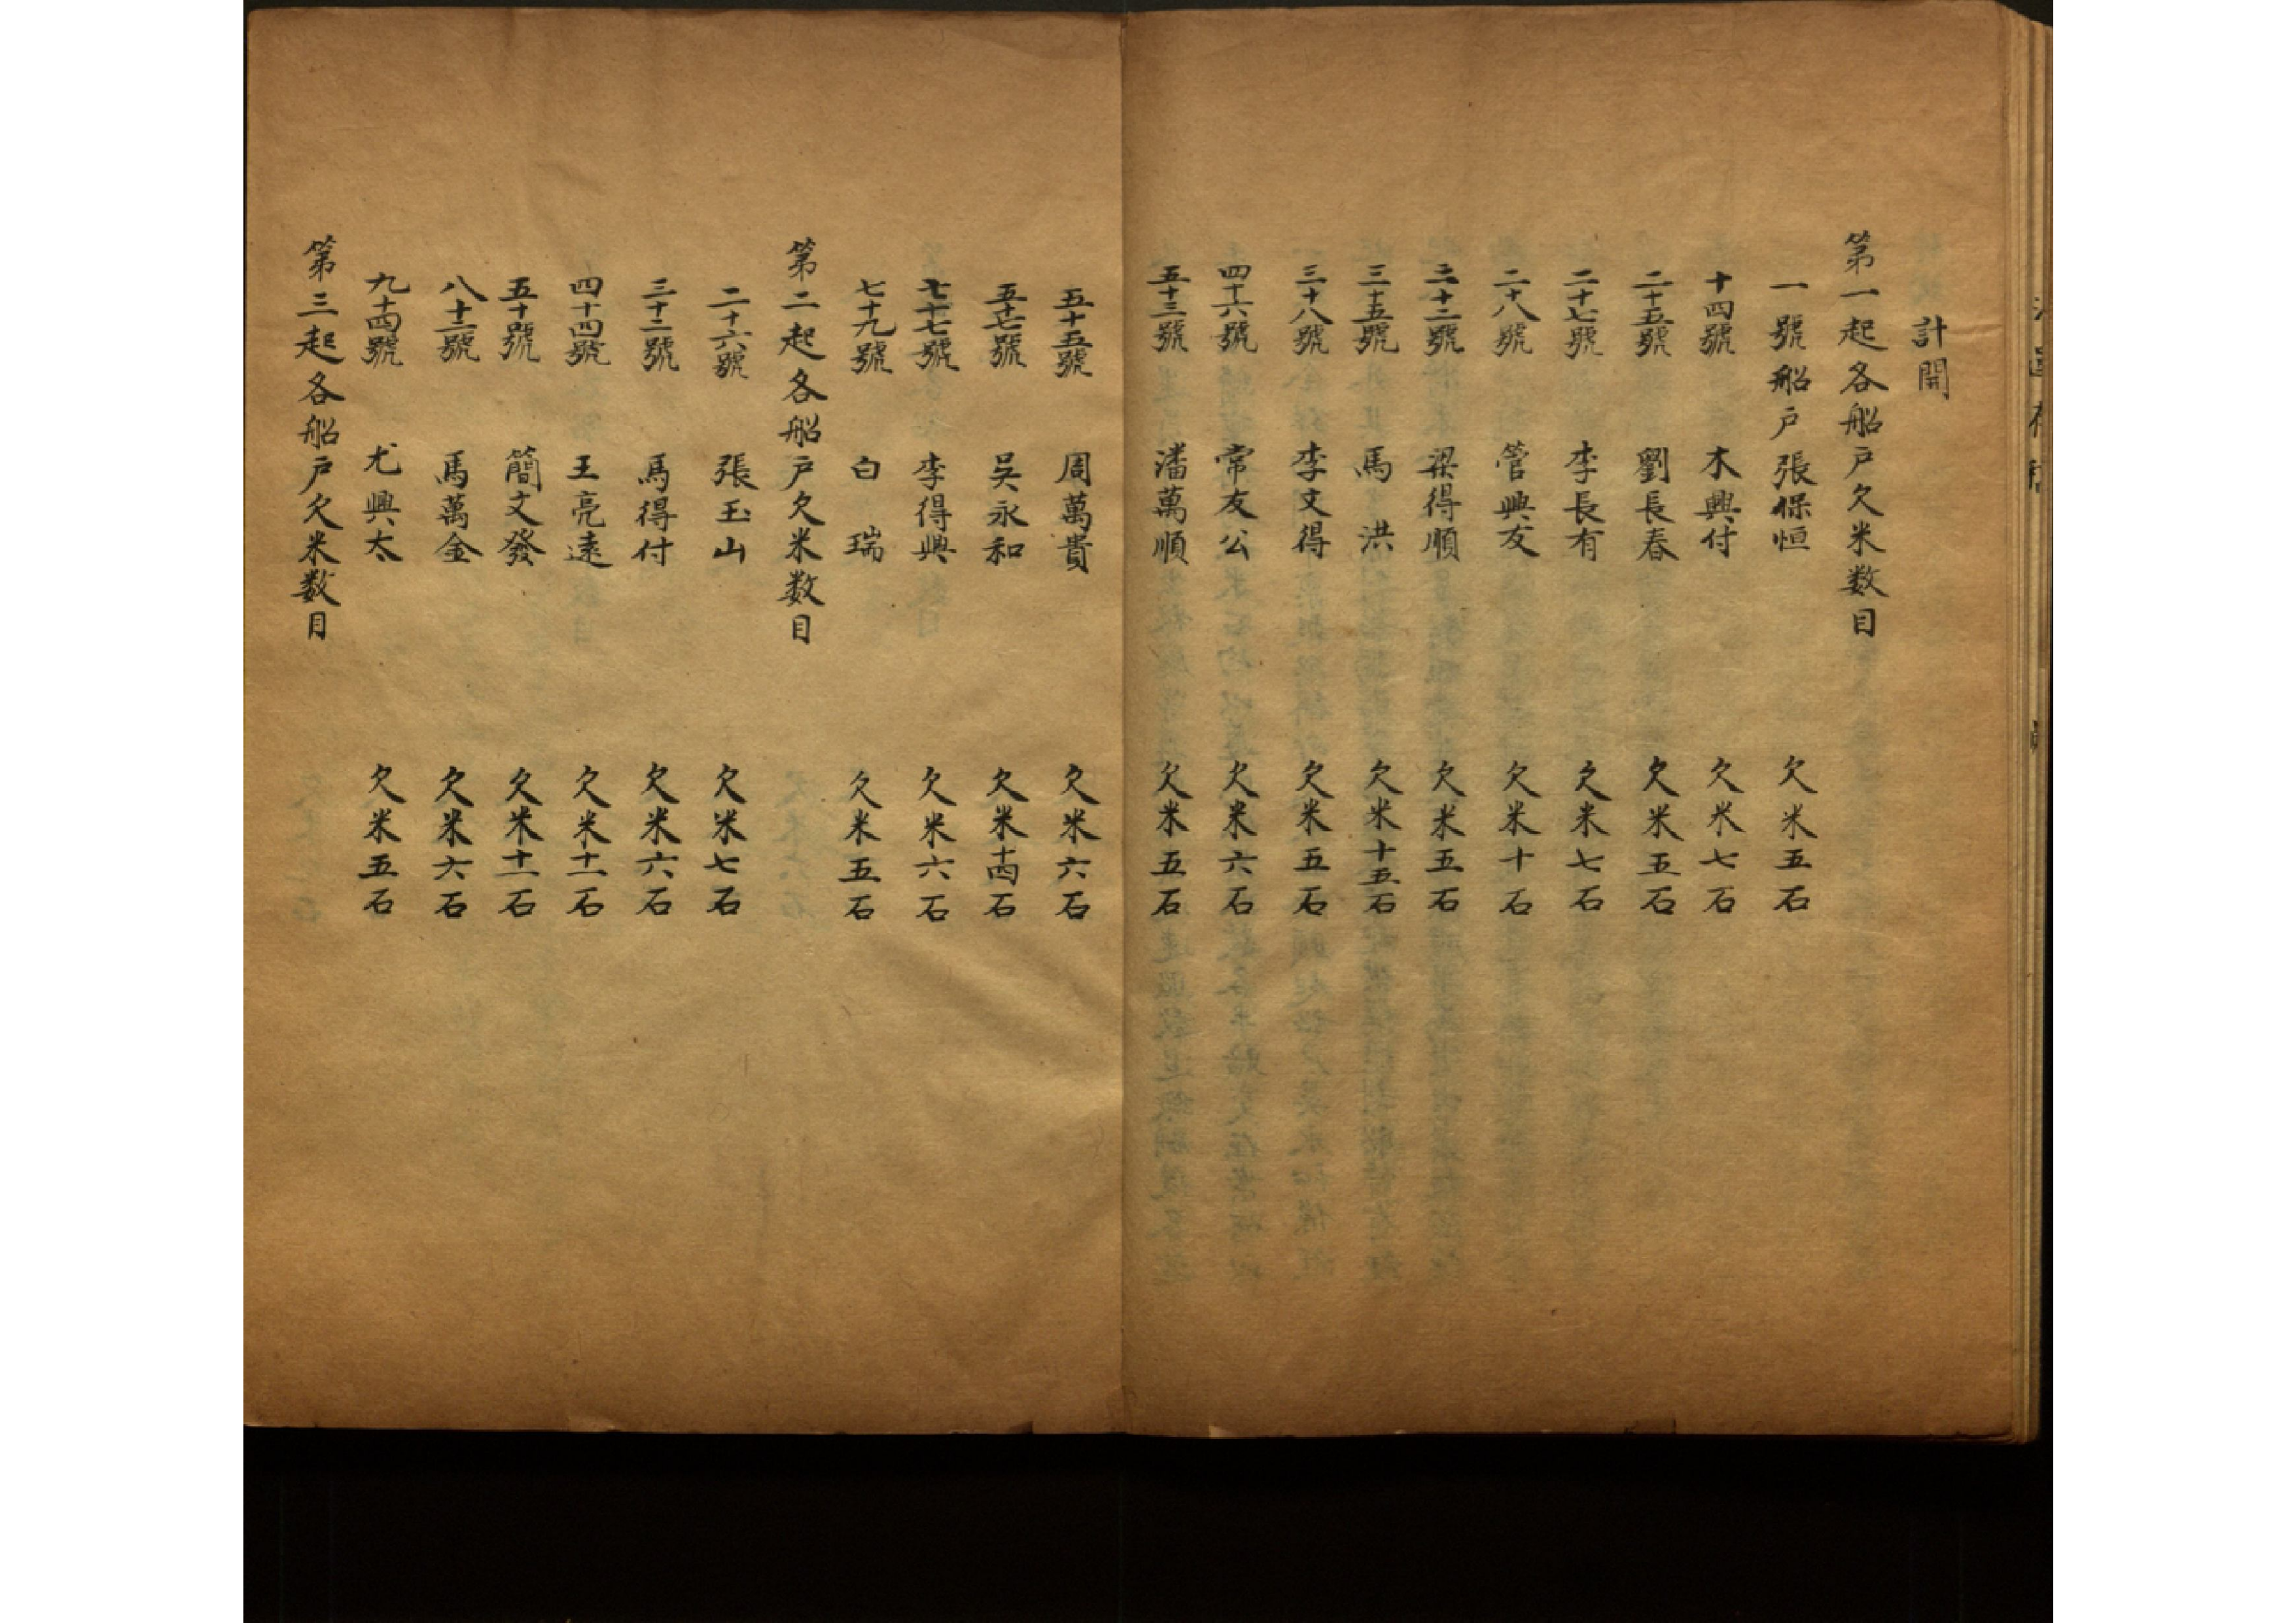 計開
第一起各船戶欠米数目
一號船戶張保恒 欠米五石
十四號 木興付 欠米七石
二十五號 劉長春 欠米五石
二十七號 李長有 欠米七石
二十八號 管興友 欠米十石
三十二號 梁得順 欠米五石
三十五號 馬洪 欠米十五石
三十八號 李文得 欠米五石
四十六號 常友公 欠米六石
五十三號 潘萬順 欠米五石
五十五號 周萬貴 欠米六石
五十七號 吳永和 欠米十四石
七十七號 李得興 欠米六石
七十九號 白瑞 欠米五石
第二起各船戶欠米数目
二十六號 張玉山 欠米七石
三十二號 馬得付 欠米六石
四十四號 王亮遠 欠米十一石
五十號 簡文發 欠米十一石
八十二號 馬萬金 欠米六石
九十四號 尤興太 欠米五石
第三起各船戶欠米数目